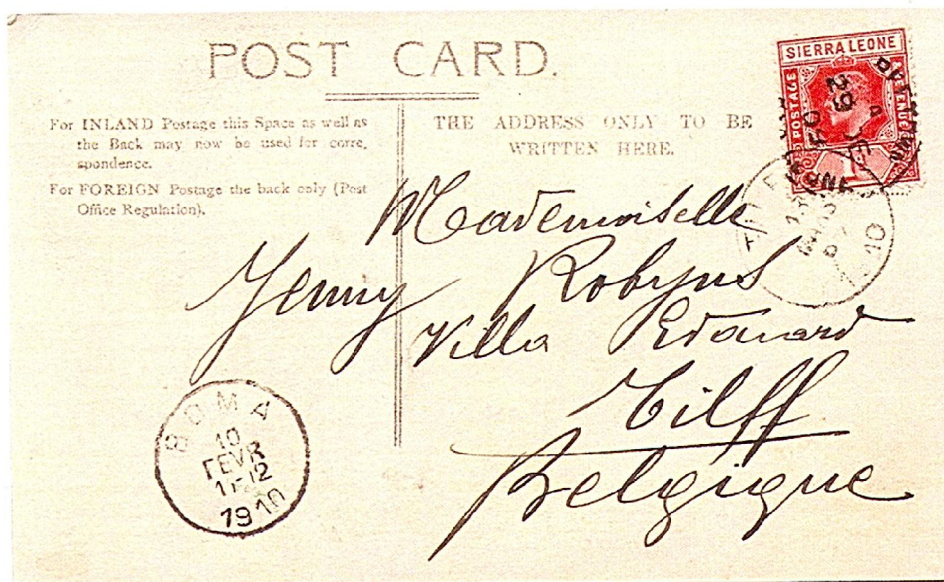 POST CARD.
For INLAND Postage this Space as well as
the Back may now be used for corre,
spondence.
For FOREIGN Postage the back only (Post
Office Regulation).
THE ADDRESS ONLY TO BE
WRITTEN HERE.
SIERRA LEONE
POSTAGE
29
Mademoiselle
Jenny Robyns
Villa Edouard
Tilff
Belgique
BOMA
10
FEVR
11-12
1910